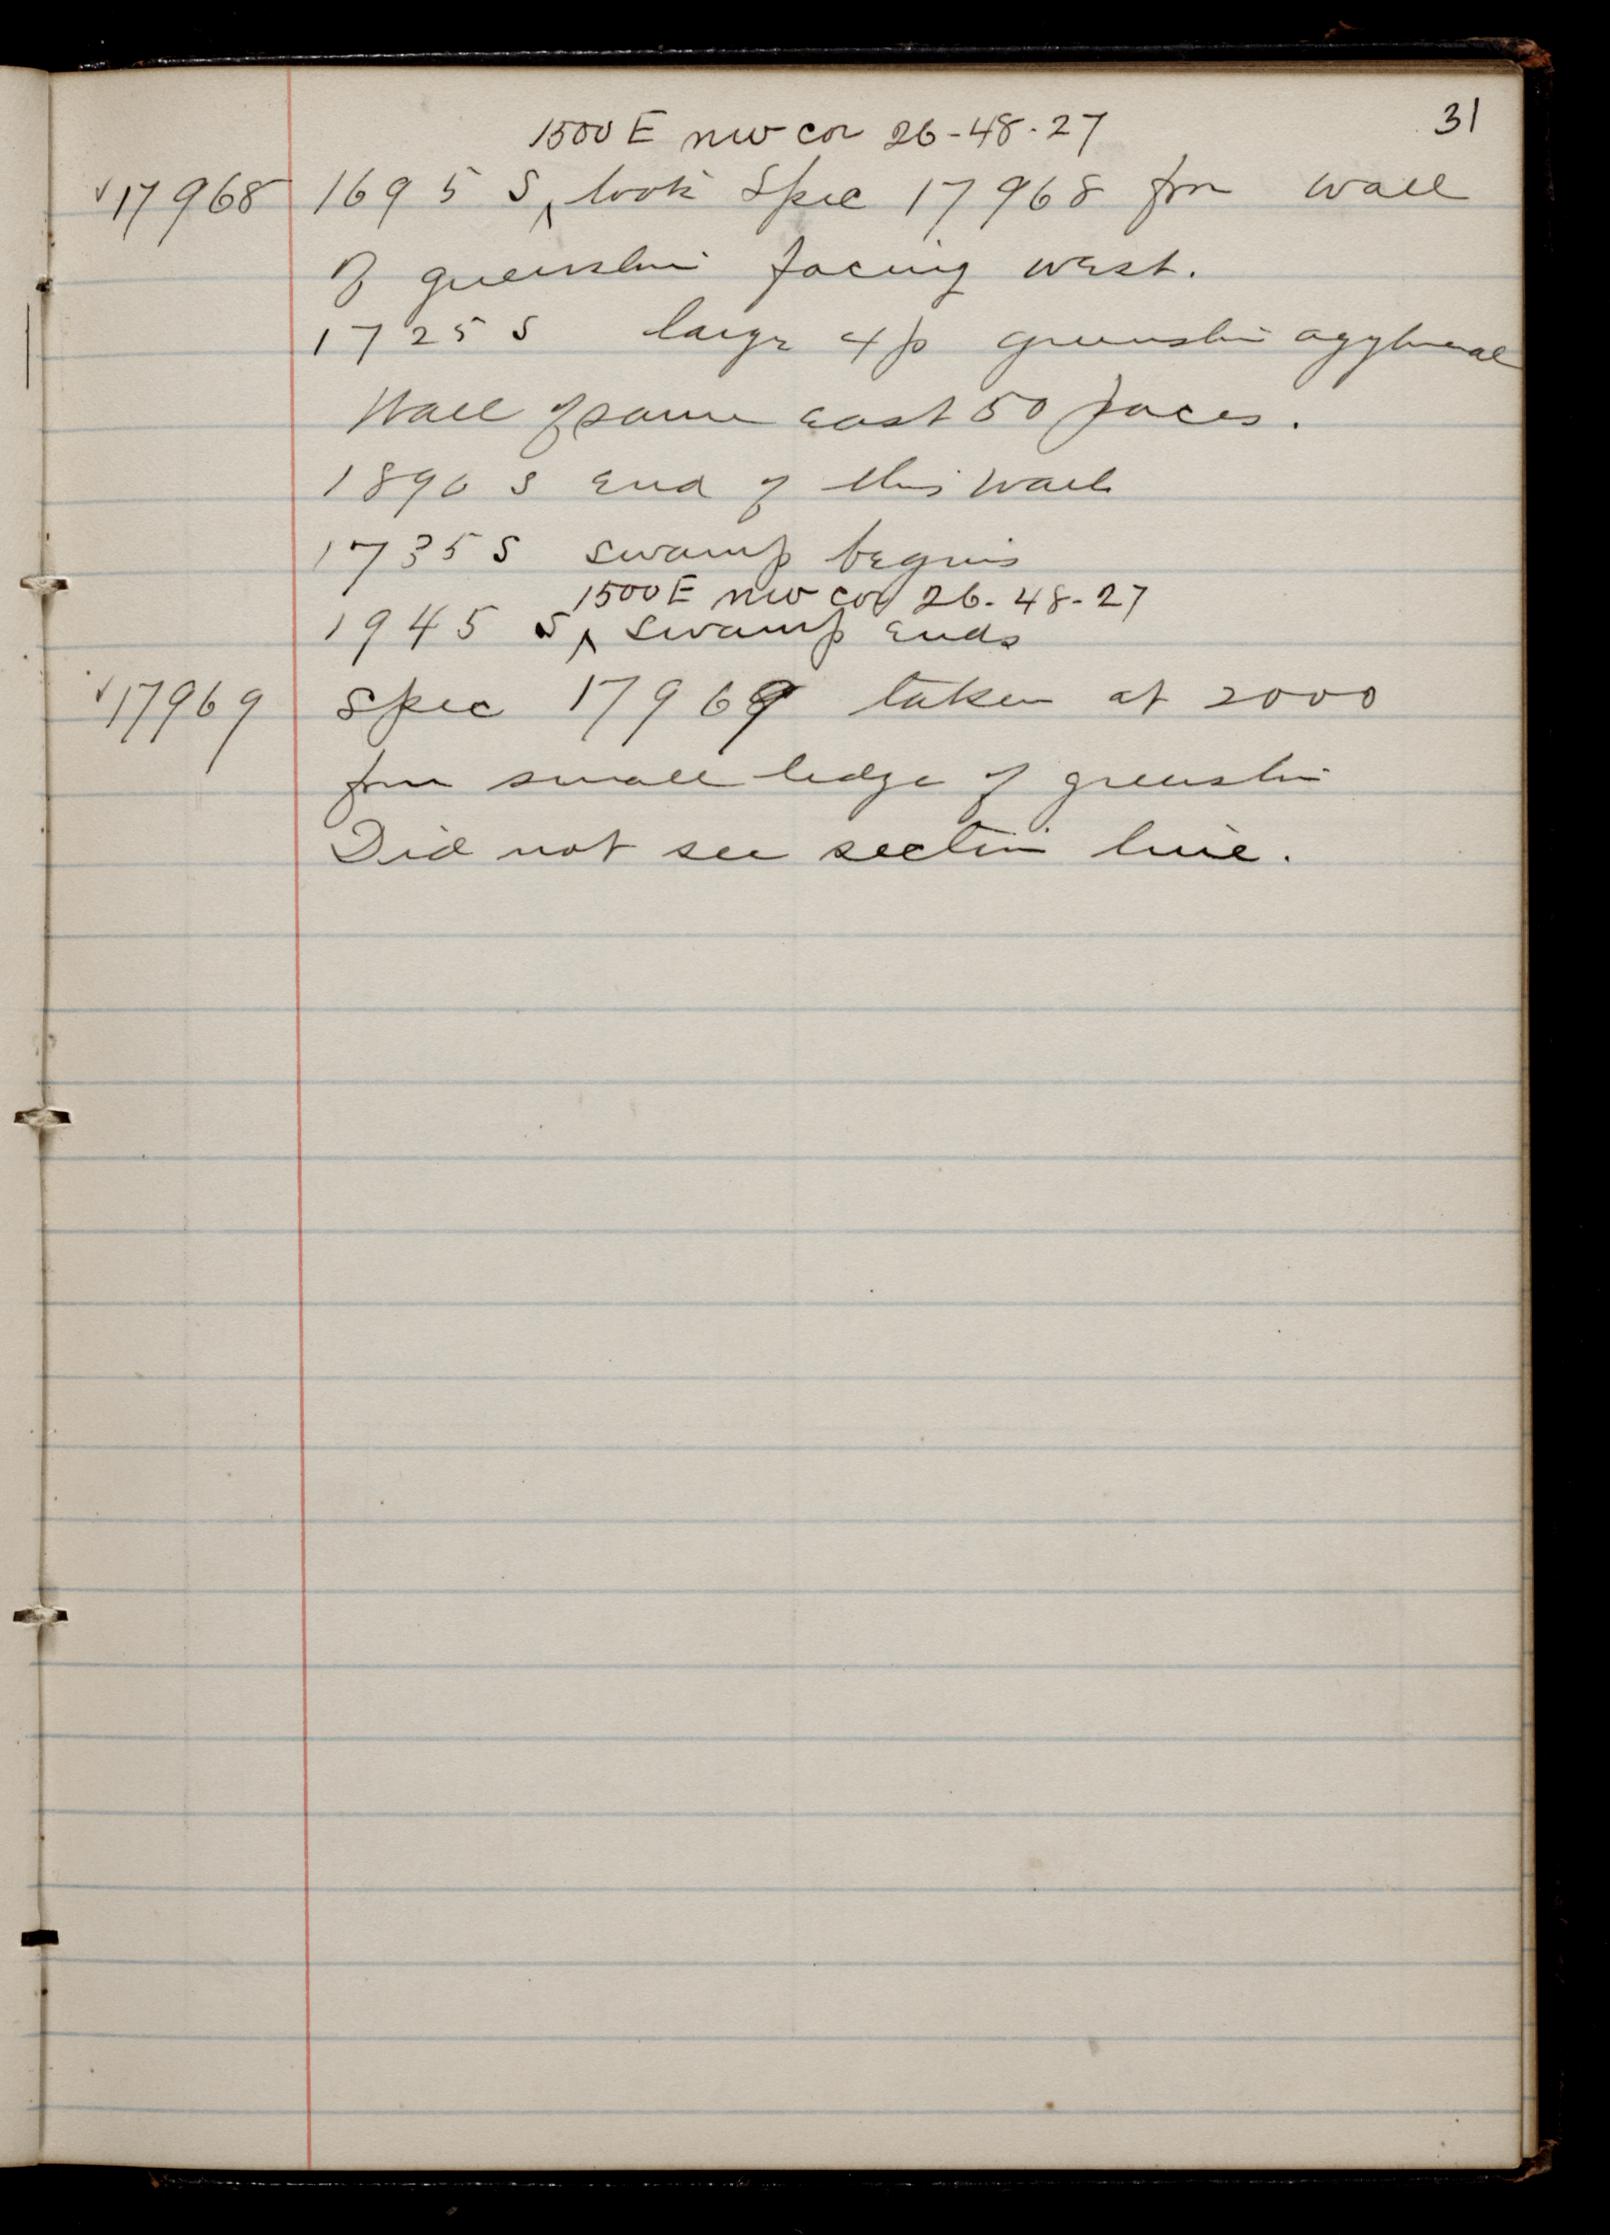 31
1500 E nw cor 26-48-27
✓17968 1695 S ^ took Spec 17968 from wall
of greenstone facing west.
1725 S large exp greenstone agglomerate
Wall of same east 50 paces.
1890 S end of this wall
1735 S swamp begins
1500 E nw cor 26-48-27
1945 S ^ swamp ends
✓17969 Spec 17969 taken at 2000
from small ledge of greenstone
Did not see section line.